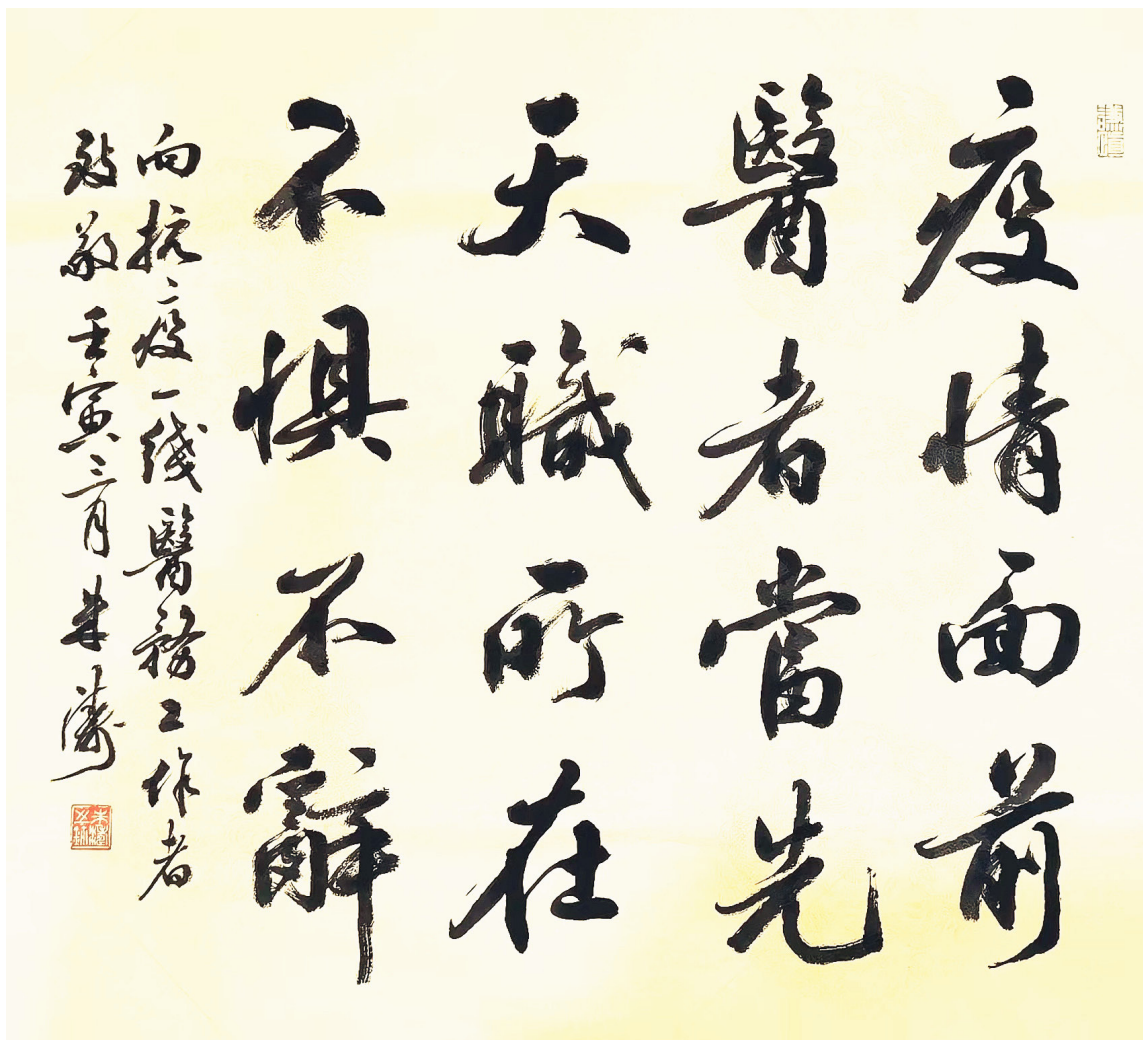 疫情面前
醫者當先
天職所在
不懼不辭
向抗疫一綫醫務工作者
致敬壬寅三月朱濤